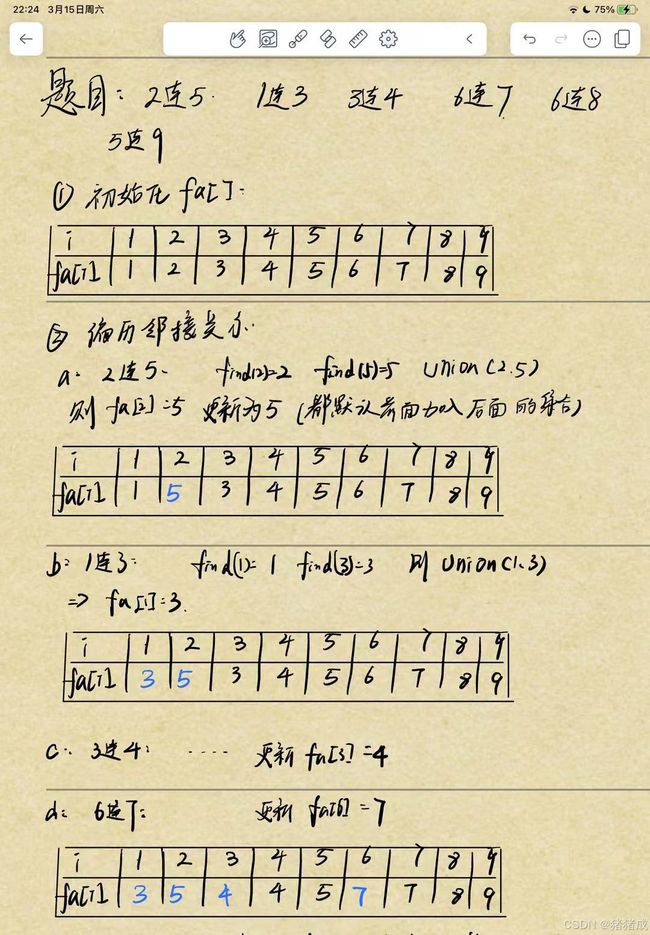 22:24 3月15日周六 75%
题目: 2连5. 1连3 3连4 6连7 6连8
5连9
① 初始化 fa[]:
i 1 2 3 4 5 6 7 8 9
fa[i] 1 2 3 4 5 6 7 8 9
② 遍历邻接关系
a. 2连5. find(2)=2 find(5)=5 Union(2.5)
则 fa[2]=5 更新为5 (都默认前面加入后面的集合)
i 1 2 3 4 5 6 7 8 9
fa[i] 1 5 3 4 5 6 7 8 9
b: 1连3: find(1)=1 find(3)=3 则 Union(1.3)
=> fa[1]=3.
i 1 2 3 4 5 6 7 8 9
fa[i] 3 5 3 4 5 6 7 8 9
c: 3连4: ···· 更新 fa[3]=4
d: 6连7: 更新 fa[6]=7
i 1 2 3 4 5 6 7 8 9
fa[i] 3 5 4 4 5 7 7 8 9
CSDN @猪猪成